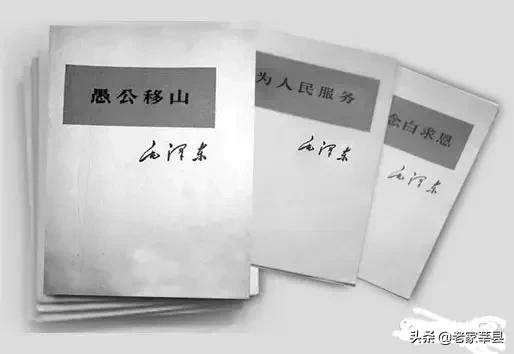 愚公移山
毛泽东
为人民服务
毛泽东
念白求恩
毛泽东
头条 @老家莘县